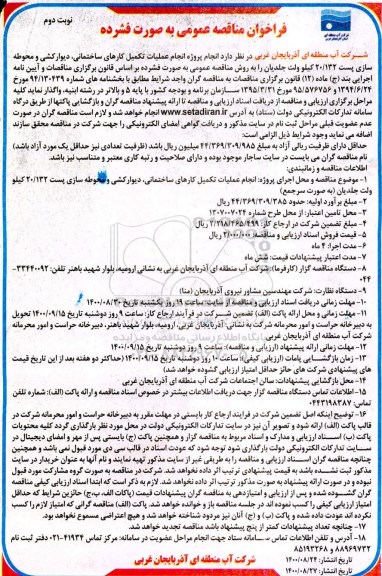 نوبت دوم
فراخوان مناقصه عمومی به صورت فشرده
شرکت آب منطقه ای آذربایجان غربی در نظر دارد انجام پروژه انجام عملیات تکمیل کارهای ساختمانی، دیوارکشی و محوطه
سازی پست ۲۰/۱۳۲ کیلو ولت جلدیان را به روش مناقصه عمومی به صورت فشرده براساس قانون برگزاری مناقصات و آیین نامه
اجرایی بند (ج) ماده (۱۲) قانون برگزاری مناقصات به مناقصه گران واجد شرایط مطابق با بخشنامه های شماره ۹۴/۱۳۰۴۳۹ مورخ
۱۳۹۴/۶/۲۴ و ۹۵/۵۷۶۷۵۶ مورخ ۱۳۹۵/۳/۳۱ سازمان برنامه و بودجه کشور با پایه ۵ و بالاتر در رشته ابنیه، واگذار نماید کلیه
مراحل برگزاری ارزیابی و مناقصه از دریافت اسناد ارزیابی و مناقصه تا ارائه پیشنهاد مناقصه گران و بازگشایی پاکتها از طریق درگاه
سامانه تدارکات الکترونیکی دولت (ستاد) به آدرس www.setadiran.ir انجام خواهد شد و لازم است مناقصه گران در صورت
عدم عضویت قبلی مراحل ثبت نام در سایت مذکور و دریافت گواهی امضای الکترونیکی را جهت شرکت در مناقصه محقق سازند
اضافه می نماید وجود شرایط ذیل الزامی است:
حداقل دارای ظرفیت ریالی آزاد به مبلغ ۴۴/۳۶۹/۳۰۹/۹۸۵ میلیون ریال باشد (ظرفیت تعدادی نیز حداقل یک مورد آزاد باشد)
نام مناقصه گران می بایست در سایت ساجار موجود بوده و دارای صلاحیت و رتبه کاری معتبر و متناسب نیز باشد.
اطلاعات مناقصه و زمانبندی:
۱- موضوع مناقصه و محل اجرای پروژه: انجام عملیات تکمیل کارهای ساختمانی، دیوارکشی و محوطه سازی پست ۲۰/۱۳۲ کیلو
ولت جلدیان (به صورت سرجمع)
۲- مبلغ برآورد اولیه: حدود ۴۴/۳۶۹/۳۰۹/۳۸۵ ریال
۳- محل تامین اعتبار: از محل طرح شماره ۱۳۰۷۰۰۷۰۲۴
۴- مبلغ تضمین شرکت در ارجاع کار: ۲/۲۱۸/۴۶۵/۴۹۹ ریال
۵- قیمت فروش اسناد ارزیابی و مناقصه: ۲/۰۰۰/۰۰۰ ریال
۶- مدت اجرا: ۴ ماه
۷- مدت اعتبار پیشنهادات قیمت: شش ماه
۸- دستگاه مناقصه گزار (کارفرما): شرکت آب منطقه ای آذربایجان غربی به نشانی ارومیه، بلوار شهید باهنر تلفن: ۳۳۴۴۰۰۹۲-
۰۴۴
۹- دستگاه نظارت: شرکت مهندسین مشاور نیروی آذربایجان (منا)
۱۰- مهلت زمانی دریافت اسناد ارزیابی و مناقصه از سایت: ساعت ۱۹ روز یکشنبه تاریخ ۱۴۰۰/۰۸/۳۰
۱۱- مهلت زمانی و محل ارائه پاکت (الف) تضمین شرکت در فرآیند ارجاع کار: ساعت ۹ روز دوشنبه تاریخ ۱۴۰۰/۰۹/۱۵ تحویل
به دبیرخانه حراست و امور محرمانه شرکت به نشانی: آذربایجان غربی، ارومیه، بلوار شهید باهنر، دبیرخانه حراست و امور محرمانه
شرکت آب منطقه ای آذربایجان غربی
۱۲- مهلت زمانی ارائه پیشنهاد (ارزیابی و مناقصه): ساعت ۹ روز دوشنبه تاریخ ۱۴۰۰/۰۹/۱۵
۱۳- زمان بازگشایی پاکات (ارزیابی کیفی): ساعت ۱۰ روز دوشنبه تاریخ ۱۴۰۰/۰۹/۱۵ (حداکثر دو هفته بعد از این تاریخ قیمت
های پیشنهادی شرکت های حائز حداقل امتیاز ارزیابی گشوده خواهد شد)
۱۴- محل بازگشایی پیشنهادات: سالن اجتماعات شرکت آب منطقه ای آذربایجان غربی
۱۵- اطلاعات تماس دستگاه مناقصه گزار جهت دریافت اطلاعات بیشتر در خصوص اسناد مناقصه و ارائه پاکت (الف): شماره تلفن
تماس: ۰۴۴۳۱۹۸۷۳۸۷
۱۶- توضیح اینکه اصل تضمین شرکت در فرایند ارجاع کار بایستی در مهلت مقرر به دبیرخانه حراست و امور محرمانه شرکت در
قالب پاکت (الف) ارائه شود و تصویر آن نیز در سایت تدارکات الکترونیکی دولت در محل مورد نظر بارگذاری گردد کلیه محتویات
پاکت (ب) اسناد ارزیابی و مدارک و اسناد مربوط به مناقصه گزار و همچنین پاکت (ج) بایستی پس از مهر و امضای دیجیتال در
سامانه تدارکات الکترونیکی دولت بارگذاری شود توجه شود که عودت اسناد در قالب سی دی مورد قبول نمی باشد و همچنین
چنانچه مناقصه گران اسناد ارزیابی و مناقصه را به طریقی غیر از سایت مذکور تهیه نمایند و نام آنها به عنوان خریدار در سایت
مذکور ثبت نشده باشد به قیمت پیشنهادی ترتیب اثر داده نخواهد شد. شرکت در مناقصه به صورت گروه مشارکت مورد قبول
نبوده و در صورت ارائه پیشنهاد به صورت مذکور ترتیب اثر داده نخواهد شد. لازم به ذکر است که ابتدا اسناد ارزیابی کیفی مناقصه
گران گشوده شده و پس از ارزیابی و امتیازدهی به مناقصه گران پیشنهادات قیمت (پاکات الف، ب، ج) حائزین شرایط که حداقل
امتیاز ارزیابی کیفی را کسب نموده اند در جلسه مناقصه باز و خوانده خواهد شد. پاکت (الف) مناقصه گرانی که امتیاز لازم را کسب
نکرده اند عودت داده شده و پاکت (ب) و (ج) آنان نیز مردود شناخته خواهد شد و هیچ اعتراضی مسموع نخواهد بود.
۱۷- چنانچه تعداد پیشنهادات کمتر از پنج پیشنهاد باشد مناقصه تجدید خواهد شد.
۱۸- آدرس و تلفن اطلاعات تماس سامانه ستاد جهت انجام مراحل عضویت در سامانه: مرکز تماس ۴۱۹۳۴-۰۲۱ دفتر ثبت نام
۸۸۹۶۹۷۳۲ و ۸۵۱۹۳۲۶۸
تاریخ انتشار: ۱۴۰۰/۰۸/۲۴
تاریخ انتشار: ۱۴۰۰/۰۸/۲۷
شرکت آب منطقه ای آذربایجان غربی